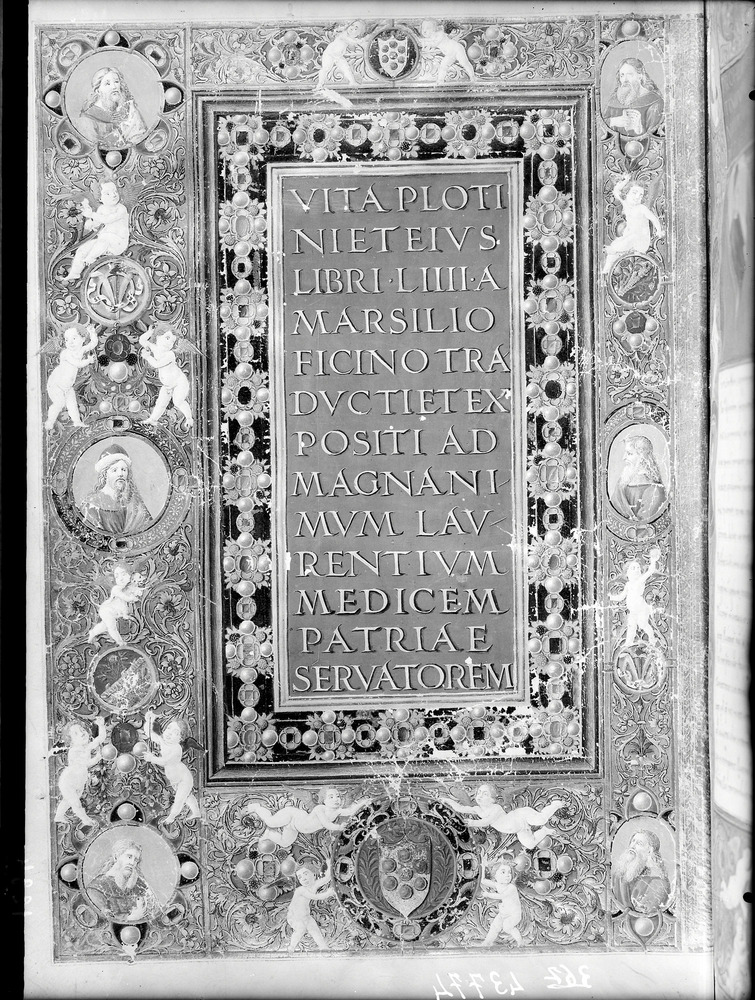 VITA PLOTI
NI ET EIVS·
LIBRI·LIIII·A
MARSILIO
FICINO TRA
DVCTI ET EX
POSITI AD
MAGNANI
MVM LAV
RENTIVM
MEDICEM
PATRIAE
SERVATOREM